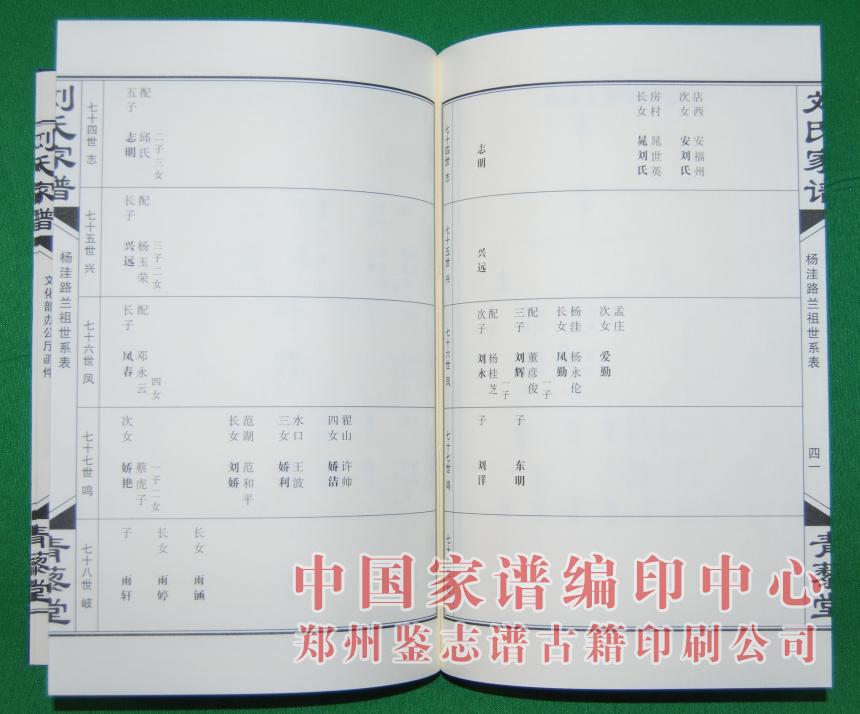 刘氏家谱
杨洼路兰祖世系表
四一
青藜堂
店西 安福州
次女 安刘氏
房村 晁世英
长女 晁刘氏
志明
七十四世 志
兴远
七十五世 兴
孟庄
次女 爱勤
杨洼 杨永伦
长女 凤勤 一子
配 董彦俊
三子 刘辉 一子
配 杨桂芝
次子 刘永
七十六世 凤
子 东明
子 刘洋
七十七世 鸣
配 邱氏 二子三女
五子 志明
七十四世 志
配 杨玉荣 三子二女
长子 兴远
七十五世 兴
配 邓永云 四女
长子 凤春
七十六世 凤
翟山 许帅
四女 娇洁
水口 王波
三女 娇利
范湖 范和平
长女 刘娇
蔡虎子 一子二女
次女 娇艳
七十七世 鸣
长女 雨涵
长女 雨婷
子 雨轩
七十八世 岐
刘氏家谱
杨洼路兰祖世系表
青藜堂
刘氏家谱
文化部办公厅函件
青藜堂
中国家谱编印中心
郑州鉴志谱古籍印刷公司